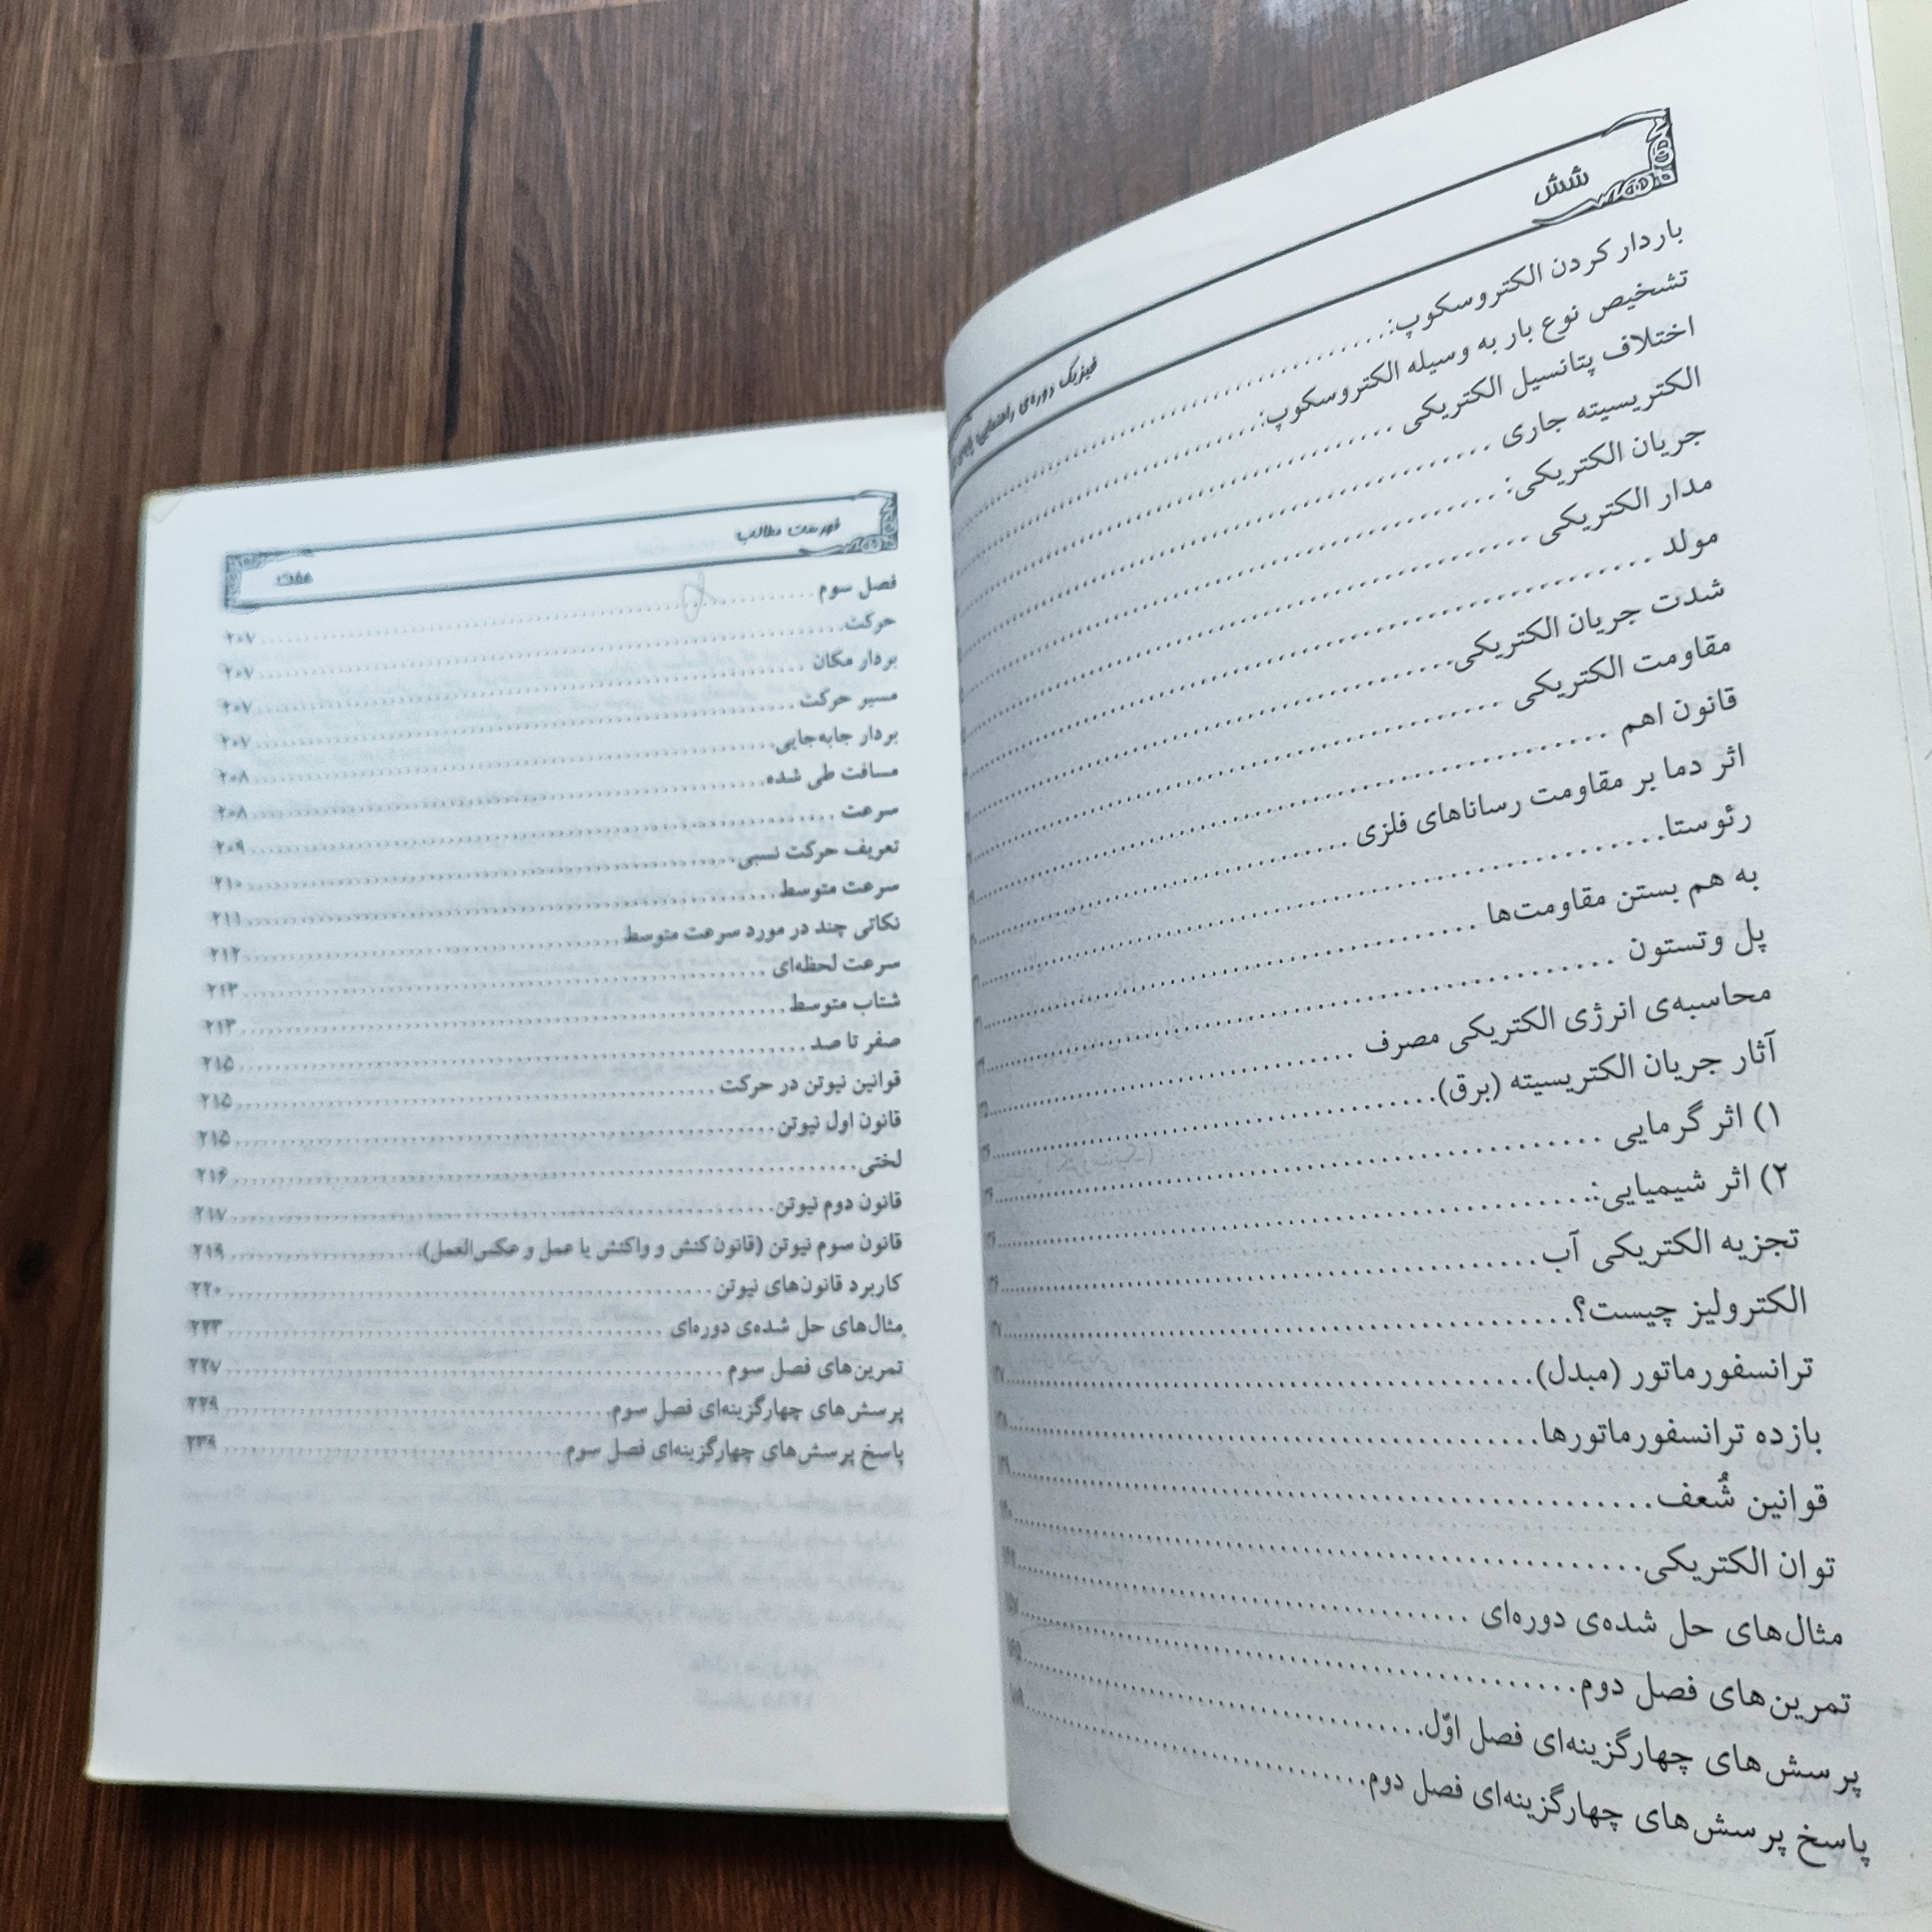 شش
فیزیک دوره‌ی راهنمایی؛
باردار کردن الکتروسکوپ:
تشخیص نوع بار به وسیله الکتروسکوپ:
اختلاف پتانسیل الکتریکی
الکتریسیته جاری
جریان الکتریکی:
مدار الکتریکی
مولد
شدت جریان الکتریکی
مقاومت الکتریکی
قانون اهم
اثر دما بر مقاومت رساناهای فلزی
رئوستا
به هم بستن مقاومت‌ها
پل وتستون
محاسبه‌ی انرژی الکتریکی مصرف
آثار جریان الکتریسیته (برق)
۱) اثر گرمایی
۲) اثر شیمیایی:
تجزیه الکتریکی آب
الکترولیز چیست؟
ترانسفورماتور (مبدل)
بازده ترانسفورماتورها
قوانین شُعف
توان الکتریکی
مثال‌های حل شده‌ی دوره‌ای
تمرین‌های فصل دوم
پرسش‌های چهارگزینه‌ای فصل اوّل
پاسخ پرسش‌های چهارگزینه‌ای فصل دوم
فهرست مطالب هفت
فصل سوم ۲۰۷
حرکت ۲۰۷
بردار مکان ۲۰۷
مسیر حرکت ۲۰۷
بردار جابه‌جایی ۲۰۸
مسافت طی شده ۲۰۸
سرعت ۲۰۹
تعریف حرکت نسبی ۲۱۰
سرعت متوسط ۲۱۱
نکاتی چند در مورد سرعت متوسط ۲۱۲
سرعت لحظه‌ای ۲۱۳
شتاب متوسط ۲۱۳
صفر تا صد ۲۱۵
قوانین نیوتن در حرکت ۲۱۵
قانون اول نیوتن ۲۱۵
لختی ۲۱۶
قانون دوم نیوتن ۲۱۷
قانون سوم نیوتن (قانون کنش و واکنش یا عمل و عکس‌العمل) ۲۱۹
کاربرد قانون‌های نیوتن ۲۲۰
مثال‌های حل شده‌ی دوره‌ای ۲۲۳
تمرین‌های فصل سوم ۲۲۷
پرسش‌های چهارگزینه‌ای فصل سوم ۲۲۹
پاسخ پرسش‌های چهارگزینه‌ای فصل سوم ۲۳۹